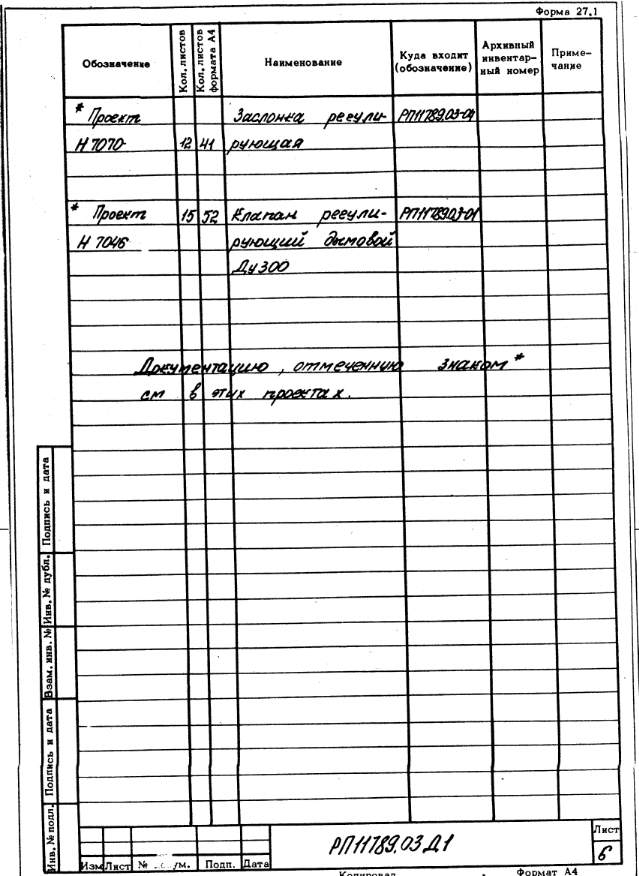 Форма 27.1
Обозначение Кол. листов Кол. листов формата А4 Наименование Куда входит (обозначение) Архивный инвентарный номер Примечание
* Проект Заслонка регули- РП11789.03-01
Н 7070 12 41 рующая
* Проект 15 52 Клапан регули- РП11789.03-01
Н 7046 рующий дымовой
Ду300
Документацию, отмеченную знаком *
см в этих проектах.
Подпись и дата
Инв. № дубл.
Взам. инв. №
Подпись и дата
Инв. № подл.
РП11789.03 Д1
Лист
6
Изм Лист № Подп. Дата
Копировал Формат А4